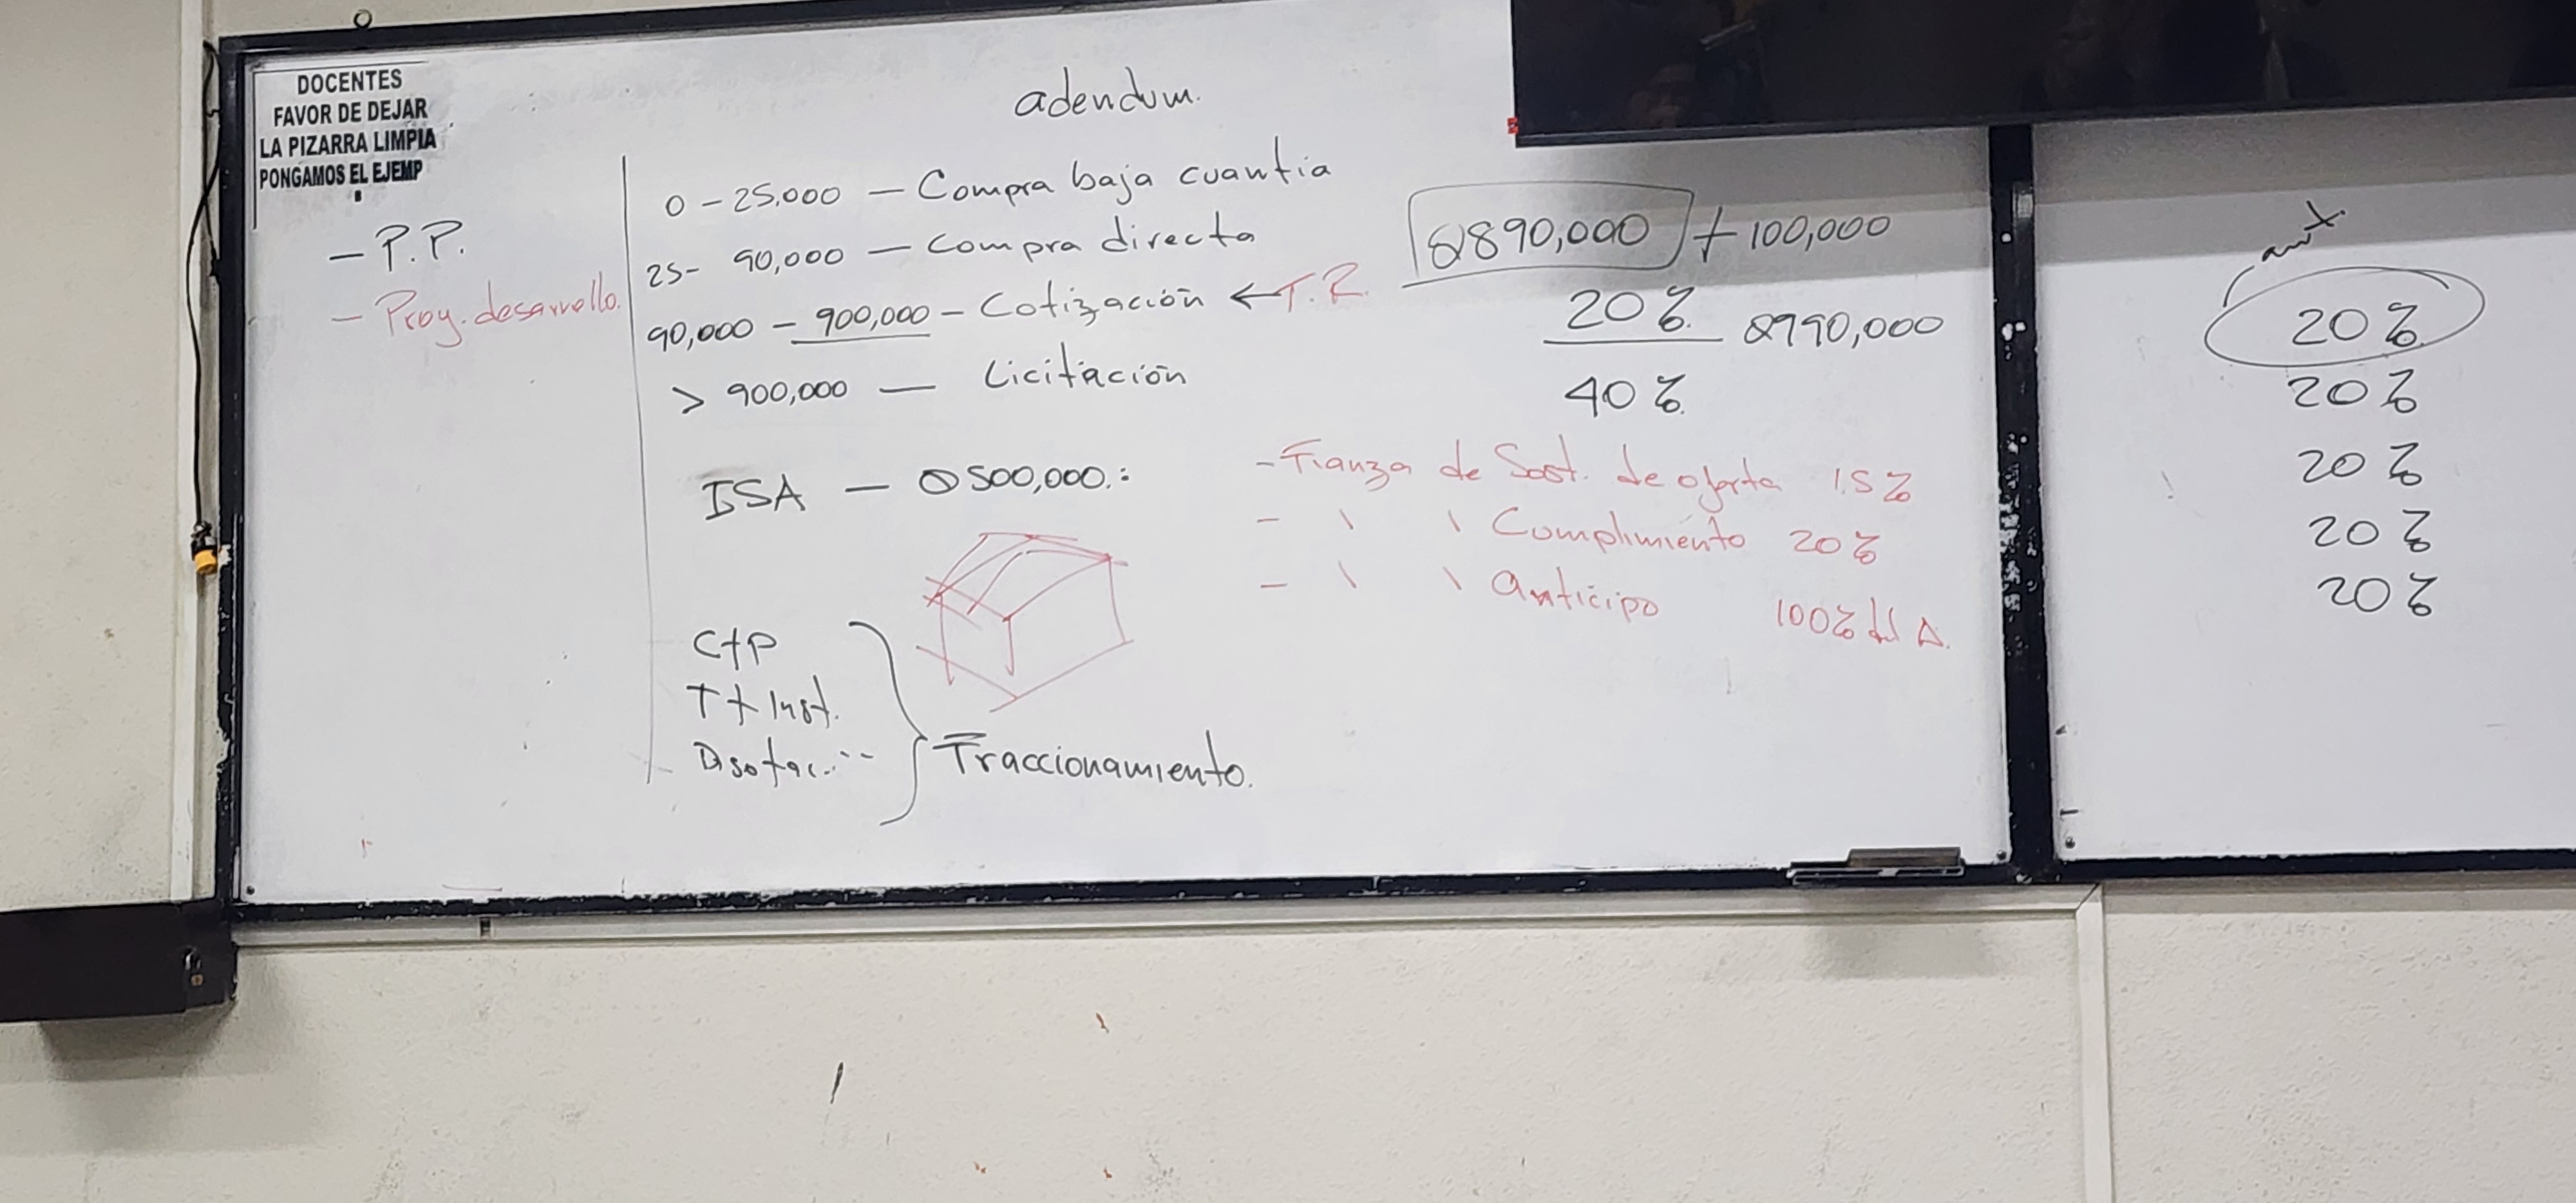 DOCENTES
FAVOR DE DEJAR
LA PIZARRA LIMPIA
PONGAMOS EL EJEMP
adendum.
- P.P.
- Proy. desarrollo.
0 - 25,000 — Compra baja cuantia
25- 90,000 — Compra directa
90,000 - 900,000 - Cotización ← T.R.
> 900,000 — Licitación
ISA — Q500,000.:
C+P
T + Inst.
Fraccionamiento.
Q890,000 + 100,000
20%
Q990,000
40%
- Fianza de Sost. de oferta 1.5%
- \ \ Cumplimiento 20%
- \ \ Anticipo 100% del A.
ant.
20%
20%
20%
20%
20%